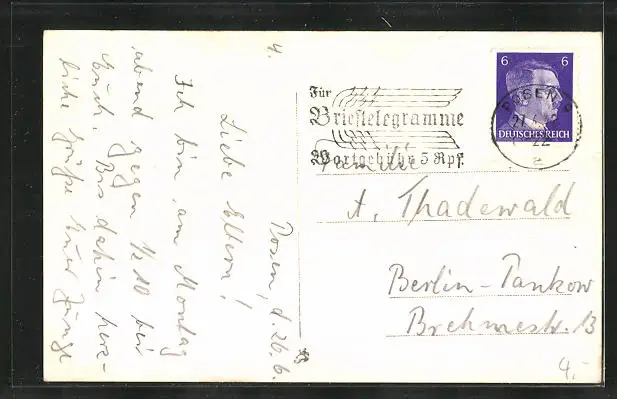 4.
Posen, d. 26.6.
Liebe Eltern!
Ich bin am Montag
abend gegen ½10 bei
Euch. Bis dahin herz-
liche Grüße Euer Junge
Für
Brieftelegramme
Wortgebühr 5 Rpf.
6 6
POSEN 9
22
a
DEUTSCHES REICH
Familie
A. Thadewald
Berlin-Pankow
Brehmestr. 13
4.-